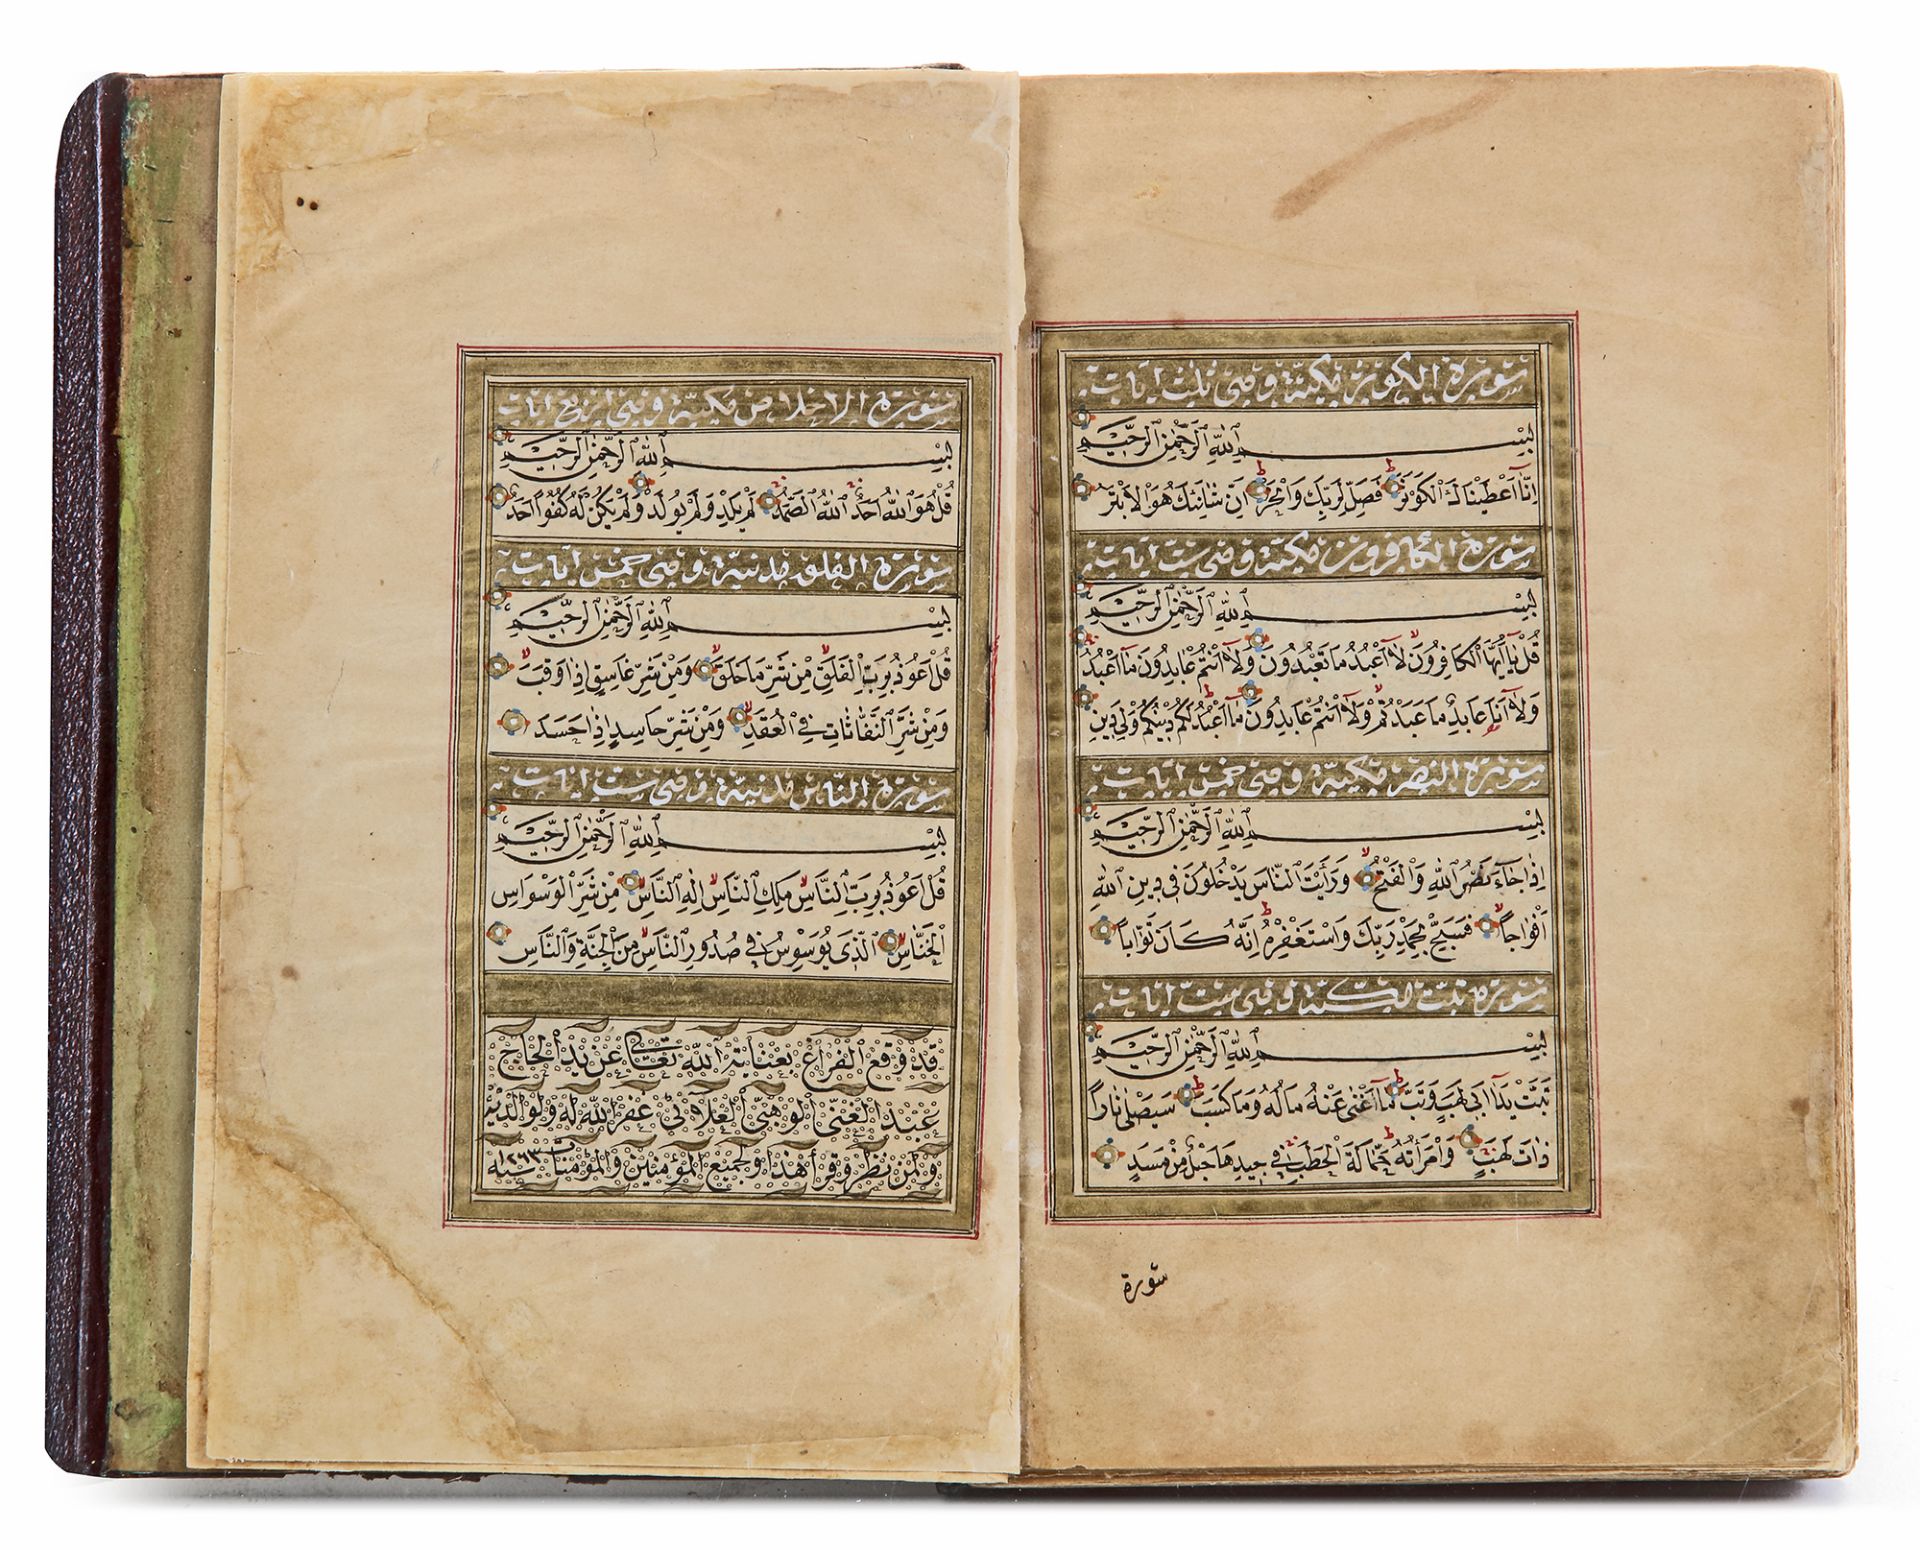 سورة الكوثر مكية وهي ثلث ايات
بِسْمِ اللهِ الرَّحْمٰنِ الرَّحِيمِ
اِنَّا اَعْطَيْنَاكَ الْكَوْثَرَ فَصَلِّ لِرَبِّكَ وَانْحَرْ اِنَّ شَانِئَكَ هُوَ الْاَبْتَرُ
سورة الكافرون مكية وهي ست ايات
بِسْمِ اللهِ الرَّحْمٰنِ الرَّحِيمِ
قُلْ يَا اَيُّهَا الْكَافِرُونَ لَا اَعْبُدُ مَا تَعْبُدُونَ وَلَا اَنْتُمْ عَابِدُونَ مَا اَعْبُدُ
وَلَا اَنَا عَابِدٌ مَا عَبَدْتُمْ وَلَا اَنْتُمْ عَابِدُونَ مَا اَعْبُدُ لَكُمْ دِينُكُمْ وَلِيَ دِينِ
سورة النصر مكية وهي خمس ايات
بِسْمِ اللهِ الرَّحْمٰنِ الرَّحِيمِ
اِذَا جَاءَ نَصْرُ اللهِ وَالْفَتْحُ وَرَاَيْتَ النَّاسَ يَدْخُلُونَ فِي دِينِ اللهِ
اَفْوَاجاً فَسَبِّحْ بِحَمْدِ رَبِّكَ وَاسْتَغْفِرْهُ اِنَّهُ كَانَ تَوَّاباً
سورة تبت مكية وهي ست ايات
بِسْمِ اللهِ الرَّحْمٰنِ الرَّحِيمِ
تَبَّتْ يَدَا اَبِي لَهَبٍ وَتَبَّ مَا اَغْنٰى عَنْهُ مَالُهُ وَمَا كَسَبَ سَيَصْلٰى نَاراً
ذَاتَ لَهَبٍ وَامْرَاَتُهُ حَمَّالَةَ الْحَطَبِ فِي جِيدِهَا حَبْلٌ مِنْ مَسَدٍ
سورة
سورة الاخلاص مكية وهي اربع ايات
بِسْمِ اللهِ الرَّحْمٰنِ الرَّحِيمِ
قُلْ هُوَ اللهُ اَحَدٌ اَللهُ الصَّمَدُ لَمْ يَلِدْ وَلَمْ يُولَدْ وَلَمْ يَكُنْ لَهُ كُفُوًا اَحَدٌ
سورة الفلق مدنية وهي خمس ايات
بِسْمِ اللهِ الرَّحْمٰنِ الرَّحِيمِ
قُلْ اَعُوذُ بِرَبِّ الْفَلَقِ مِنْ شَرِّ مَا خَلَقَ وَمِنْ شَرِّ غَاسِقٍ اِذَا وَقَبَ
وَمِنْ شَرِّ النَّفَّاثَاتِ فِي الْعُقَدِ وَمِنْ شَرِّ حَاسِدٍ اِذَا حَسَدَ
سورة الناس مدنية وهي ست ايات
بِسْمِ اللهِ الرَّحْمٰنِ الرَّحِيمِ
قُلْ اَعُوذُ بِرَبِّ النَّاسِ مَلِكِ النَّاسِ اِلٰهِ النَّاسِ مِنْ شَرِّ الْوَسْوَاسِ
الْخَنَّاسِ الَّذِي يُوَسْوِسُ فِي صُدُورِ النَّاسِ مِنَ الْجِنَّةِ وَالنَّاسِ
قد وقع الفراغ بعناية الله تعالى عن يد الحاج
عبد الغني الوهبي العلاقي غفر الله له ولوالديه
ولمن نظر وقرأ هذا ولجميع المؤمنين والمؤمنات سنة ١٢٦٣